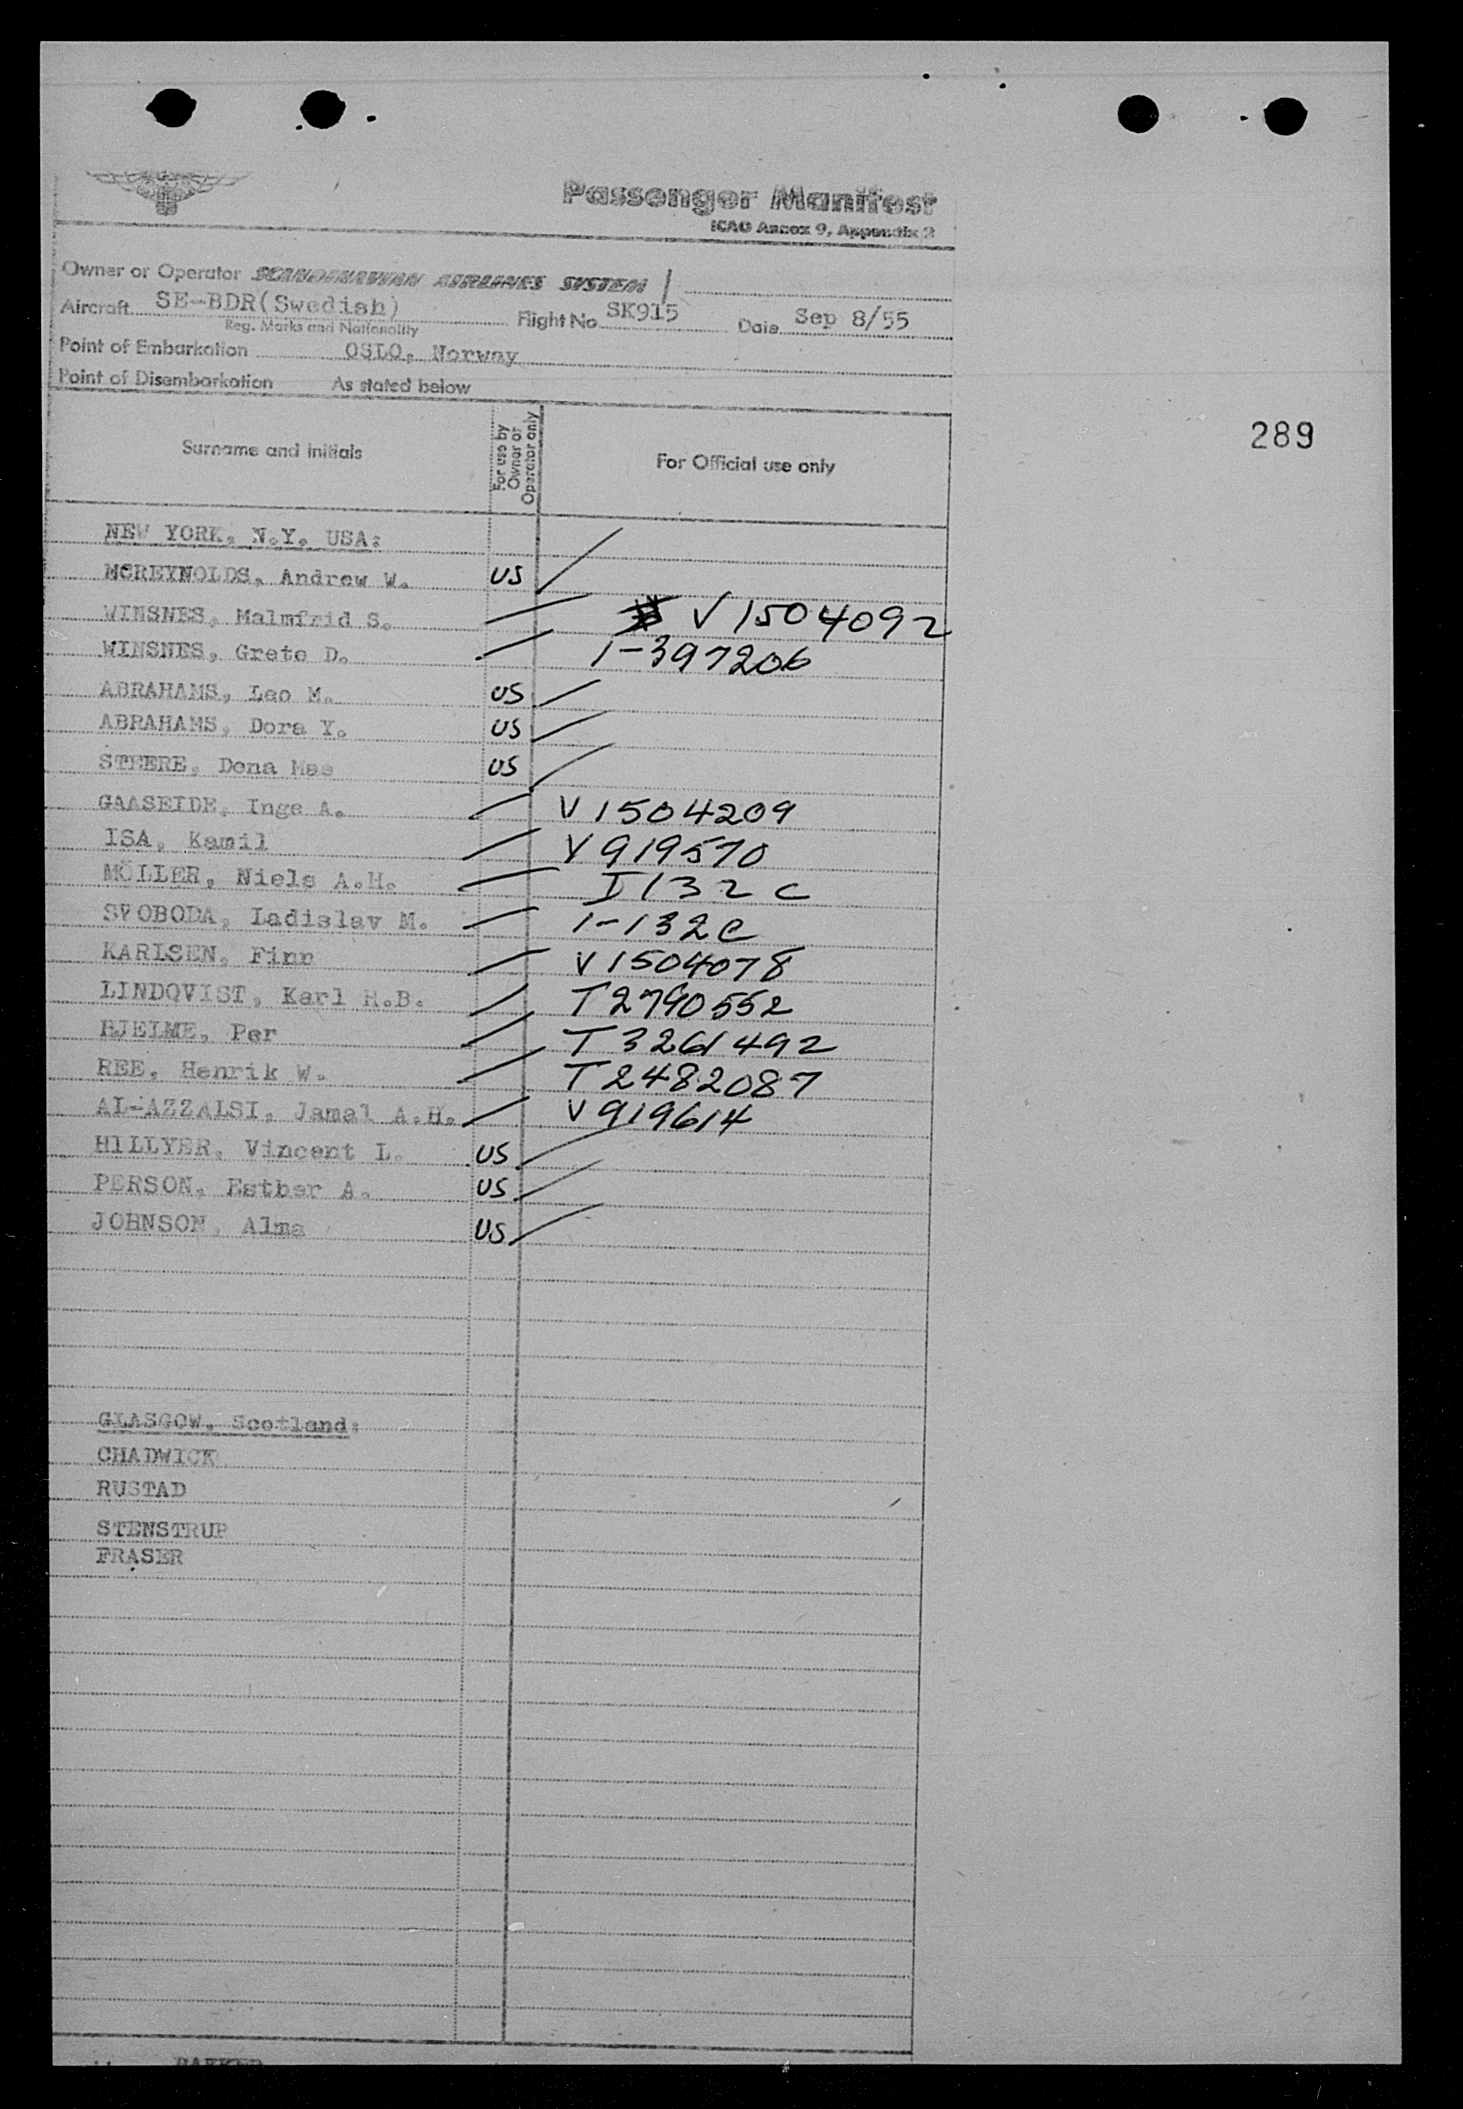 Passenger Manifest
ICAO Annex 9, Appendix 2
Owner or Operator SCANDINAVIAN AIRLINES SYSTEM
Aircraft SE-BDR(Swedish) Flight No SK915 Date Sep 8/55
Reg. Marks and Nationality
Point of Embarkation OSLO, Norway
Point of Disembarkation As stated below
289
Surname and initials For use by Owner or Operator only For Official use only
NEW YORK, N.Y. USA:
MCREYNOLDS, Andrew W. US
WINSNES, Malmfrid S. V1504092
WINSNES, Grete D. 1-397206
ABRAHAMS, Leo M. US
ABRAHAMS, Dora Y. US
STEERE, Dona Mae US
GAASEIDE, Inge A. V1504209
ISA, Kamil V919570
MÖLLER, Niels A.H. I132C
SVOBODA, Ladislav M. 1-132C
KARLSEN, Finn V1504078
LINDQVIST, Karl H.B. T2790552
HJELME, Per T3261492
REE, Henrik W. T2482087
AL-AZZALSI, Jamal A.H. V919614
HILLYER, Vincent L. US
PERSON, Esther A. US
JOHNSON, Alma US
GLASGOW, Scotland:
CHADWICK
RUSTAD
STENSTRUP
FRASER